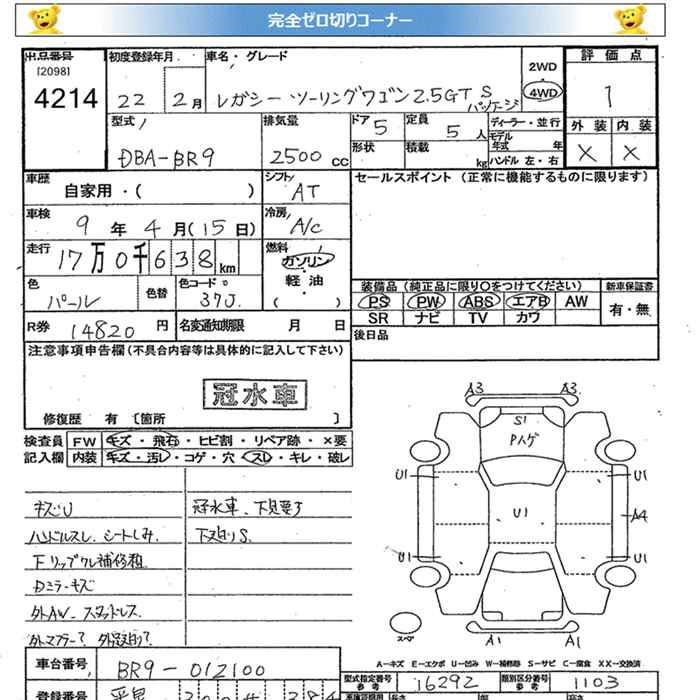 完全ゼロ切りコーナー
出品番号 初度登録年月 車名・グレード 評価点
[2098] 2WD
4214 22 2月 レガシー ツーリングワゴン 2.5GT S 4WD 1
パッケージ
型式 排気量 ドア 5 定員 5 人 ディーラー・並行 外装 内装
モデル年式 年
DBA-BR9 2500 cc 形状 積載 kg ハンドル 左・右 × ×
車歴 シフト セールスポイント (正常に機能するものに限ります)
自家用・( ) AT
車検 冷房
9 年 4 月(15 日) A/c
走行 燃料
17万0千638 km ガソリン
軽油
( )
色 色替 色コード 装備品 (純正品に限り○をつけてください) 新車保証書
パール 37J PS PW ABS エアB AW 有・無
SR ナビ TV カワ
R券 14820 円 名変通知期限 月 日 後日品
注意事項申告欄 (不具合内容等は具体的に記入して下さい)
冠水車
修復歴 有 [箇所 ]
検査員 FW キズ・飛石・ヒビ割・リペア跡・×要
記入欄 内装 キズ・汚レ・コゲ・穴・スレ・キレ・破レ
A3 A3
S1
Pハゲ
U1 U1
U1 A4
U1 U1
A1 A1
スペア
キズU 冠水車、下見要す
ハンドルスレ、シートしみ 下廻りS.
Fリップワレ補修粗
Dミラーキズ
外AW、スタッドレス.
外マフラー? 外足廻り?
A-キズ E-エクボ U-凹み W-補修跡 S-サビ C-腐食 XX-交換済
車台番号 BR9-012100 型式指定番号 参考 16292 類別区分番号 参考 1103
登録番号